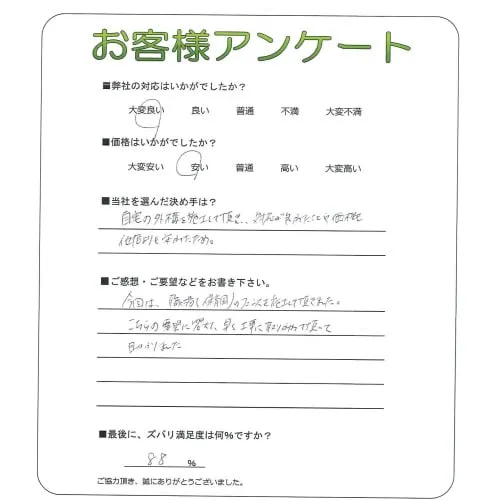 お客様アンケート
■弊社の対応はいかがでしたか？
大変良い 良い 普通 不満 大変不満
■価格はいかがでしたか？
大変安い 安い 普通 高い 大変高い
■当社を選んだ決め手は？
自宅の外構を施工して頂き、対応が良かったことや価格
他店よりも安かったため。
■ご感想・ご要望などをお書き下さい。
今回は、職場(保育園)のフェンスを施工して頂きました。
こちらの要望に答え、早く工事に取りかかって頂いて
助かりました
■最後に、ズバリ満足度は何％ですか？
88 %
ご協力頂き、誠にありがとうございました。